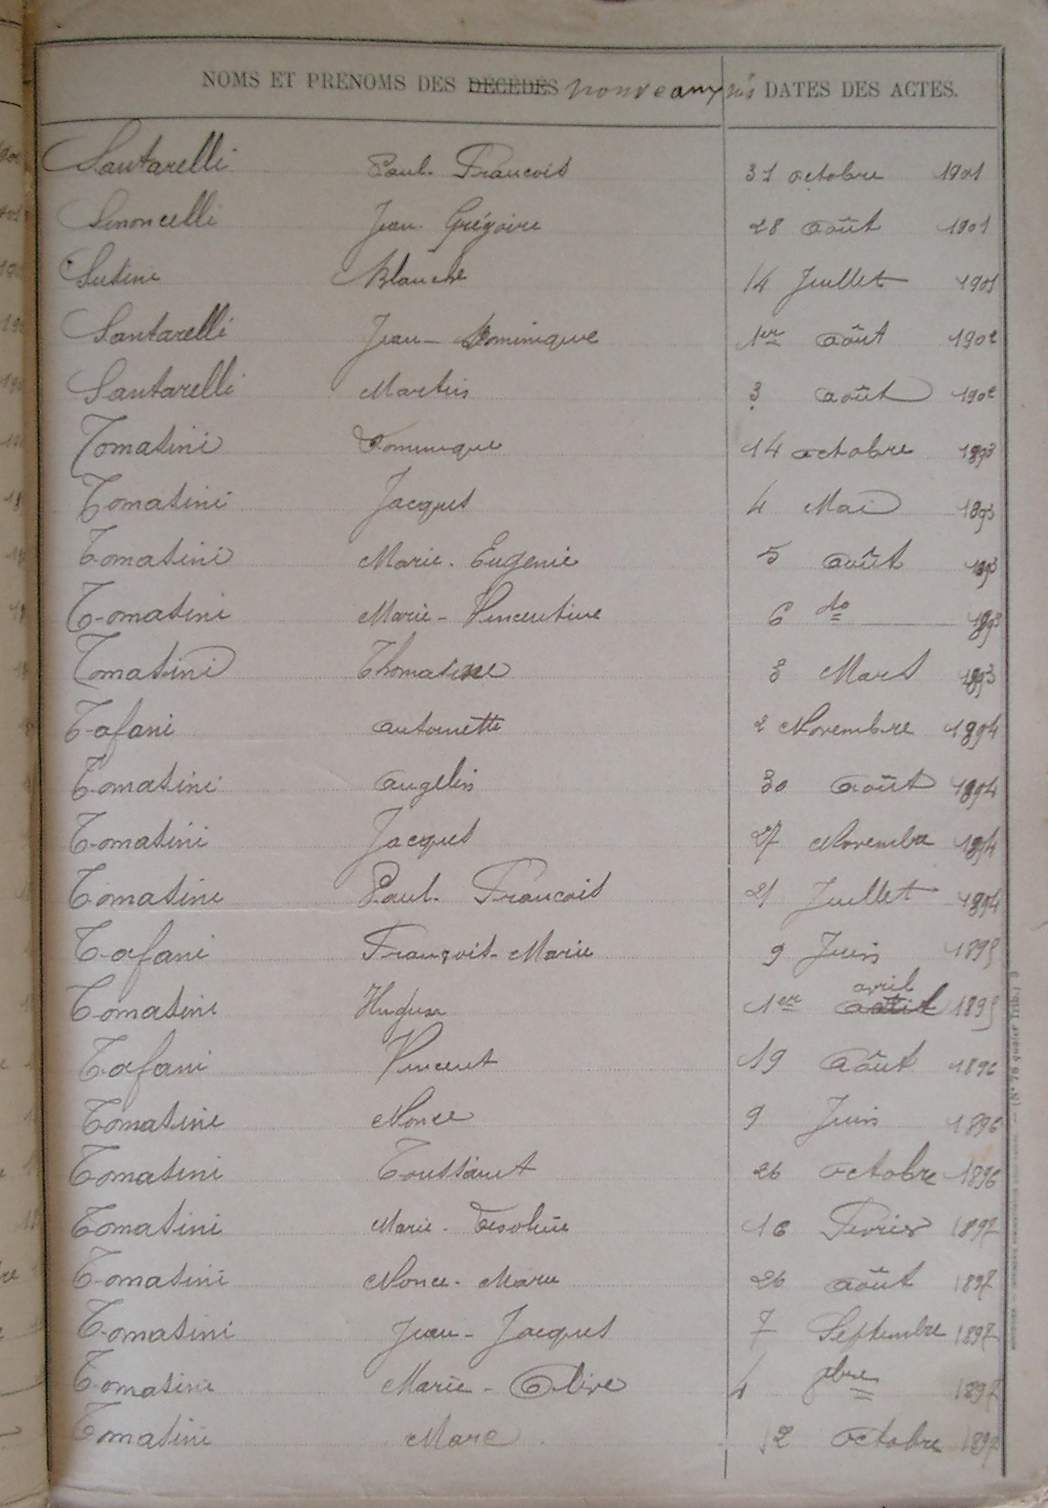 NOMS ET PRENOMS DES DÉCÉDÉS nouveaux nés DATES DES ACTES.
Santarelli Paul-Francois 31 octobre 1901
Simoncelli Jean-Grégoire 28 août 1901
Susini Blanche 14 Juillet 1901
Santarelli Jean-Dominique 1er août 1902
Santarelli Martin 3 août 1902
Tomasini Dominique 14 octobre 1893
Tomasini Jacques 4 Mai 1893
Tomasini Marie-Eugenie 5 août 1893
Tomasini Marie-Vincentine 6 do 1893
Tomasini Thomasine 8 Mars 1893
Tafani antoinette 2 Novembre 1894
Tomasini angelin 30 août 1894
Tomasini Jacques 27 Novembre 1894
Tomasini Paul-Francois 21 Juillet 1894
Tafani François-Marie 9 Juin 1895
Tomasini 1er août avril 1895
Tafani Vincent 19 Août 1896
Tomasini Nonce 9 Juin 1896
Tomasini Toussaint 26 octobre 1896
Tomasini Marie- 16 Fevrier 1897
Tomasini Nonce-Marie 26 août 1897
Tomasini Jean-Jacques 7 Septembre 1897
Tomasini Marie-Olive 4 1897
Tomasini Marc 12 octobre 1897